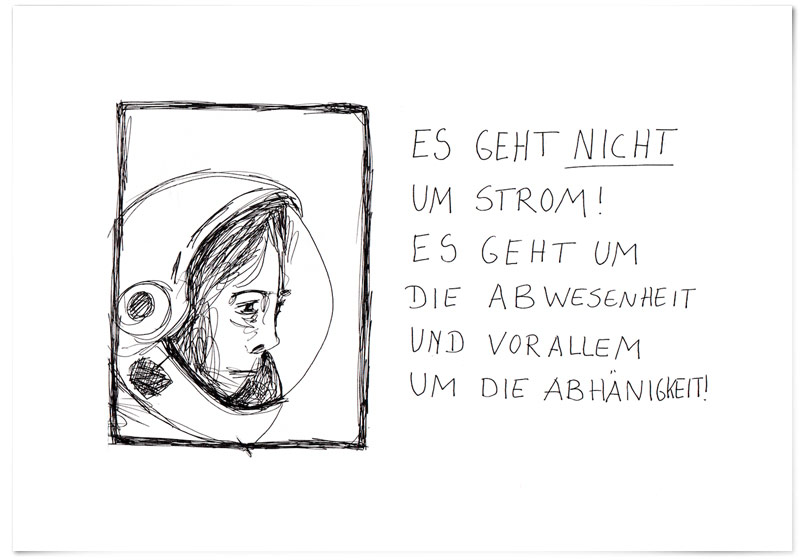 ES GEHT NICHT
UM STROM!
ES GEHT UM
DIE ABWESENHEIT
UND VORALLEM
UM DIE ABHÄNIGKEIT!